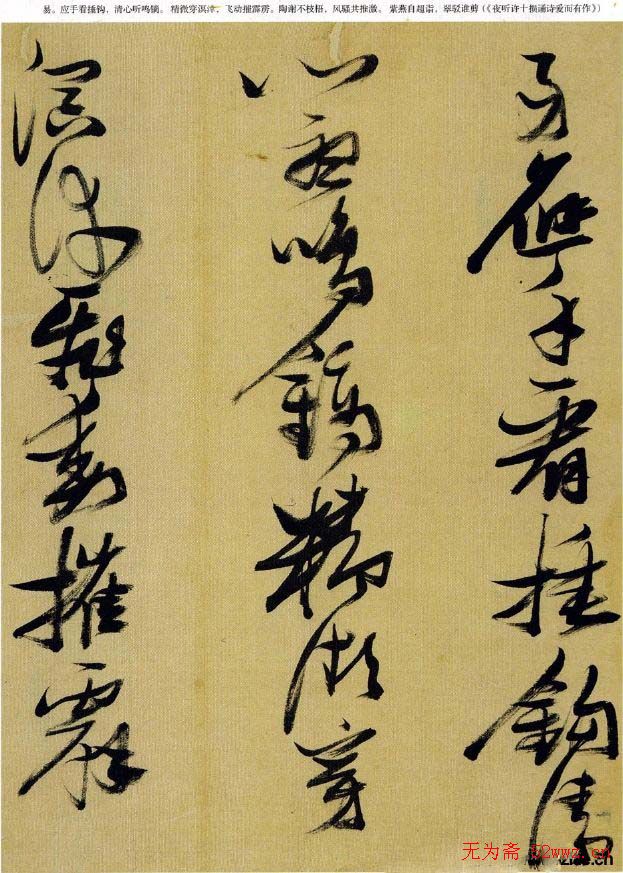 易。应手看捶钩，清心听鸣镝。精微穿溟涬，飞动摧霹雳。陶谢不枝梧，风骚共推激。紫燕自超诣，翠驳谁剪（《夜听许十损诵诗爱而有作》）
易應手看捶鉤清
心聽鳴鏑精微穿
溟涬飛動摧霹
无为斋 52wwz.cn